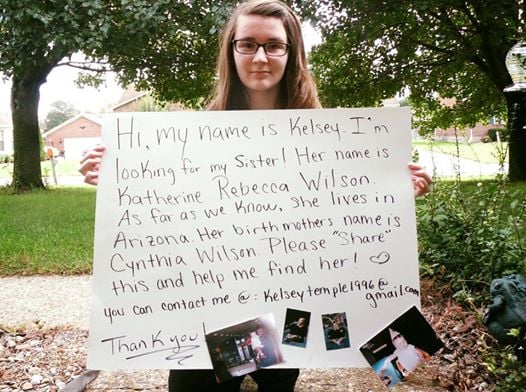 Hi, my name is Kelsey. I'm
looking for my Sister! Her name is
Katherine Rebecca Wilson.
As far as we know, she lives in
Arizona. Her birthmothers name is
Cynthia Wilson. Please "Share"
this and help me find her! ♡
You can contact me @: Kelseytemple1996@
gmail.com
Thank you!